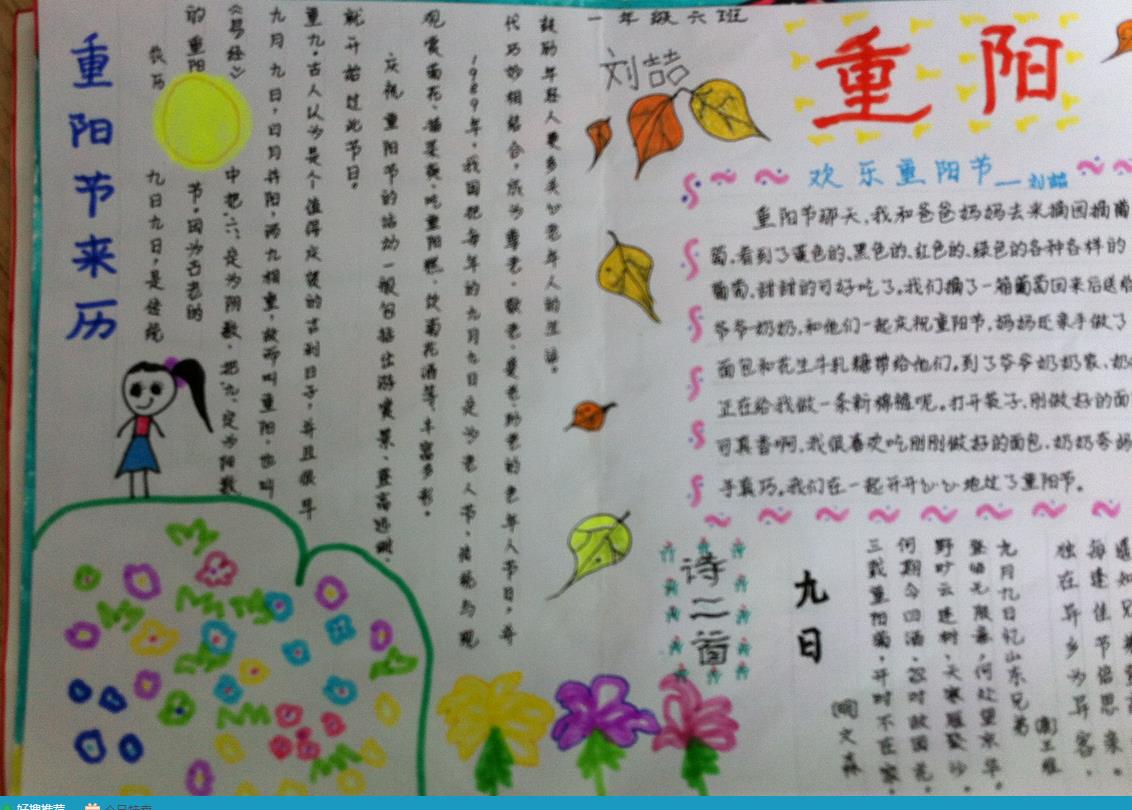 一年级六班
刘喆
重阳
重阳节来历
农历 九日九日,是传统
的重阳节。因为古老的
《易经》中把“六”定为阴数,把“九”定为阳数,
九月九日,日月并阳,两九相重,故而叫重阳,也叫
重九。古人认为是个值得庆贺的吉利日子,并且很早
就开始过此节日。
庆祝重阳节的活动一般包括出游赏景、登高远眺、
观赏菊花、插茱萸、吃重阳糕、饮菊花酒等,丰富多彩。
1989年,我国把每年的九月九日定为老人节,传统与现
代巧妙相结合,成为尊老、敬老、爱老、助老的老年人节日,并
鼓励年轻人更多关心老年人的生活。
欢乐重阳节——刘喆
重阳节那天,我和爸爸妈妈去采摘园摘葡
萄,看到了黄色的、黑色的、红色的、绿色的各种各样的
葡萄,甜甜的可好吃了。我们摘了一箱葡萄回来后送给
爷爷奶奶,和他们一起庆祝重阳节,妈妈还亲手做了
面包和花生牛轧糖带给他们。到了爷爷奶奶家,奶
正在给我做一条新棉裤呢。打开袋子,刚做好的面
可真香啊,我很喜欢吃刚刚做好的面包,奶奶夸妈
手真巧。我们在一起开开心心地过了重阳节。
诗二首
九日
[明]文森
三载重阳菊,开时不在家。
何期今日酒,忽对故园花。
野旷云连树,天寒雁聚沙。
登临无限意,何处望京华。
九月九日忆山东兄弟
[唐]王维
独在异乡为异客,
每逢佳节倍思